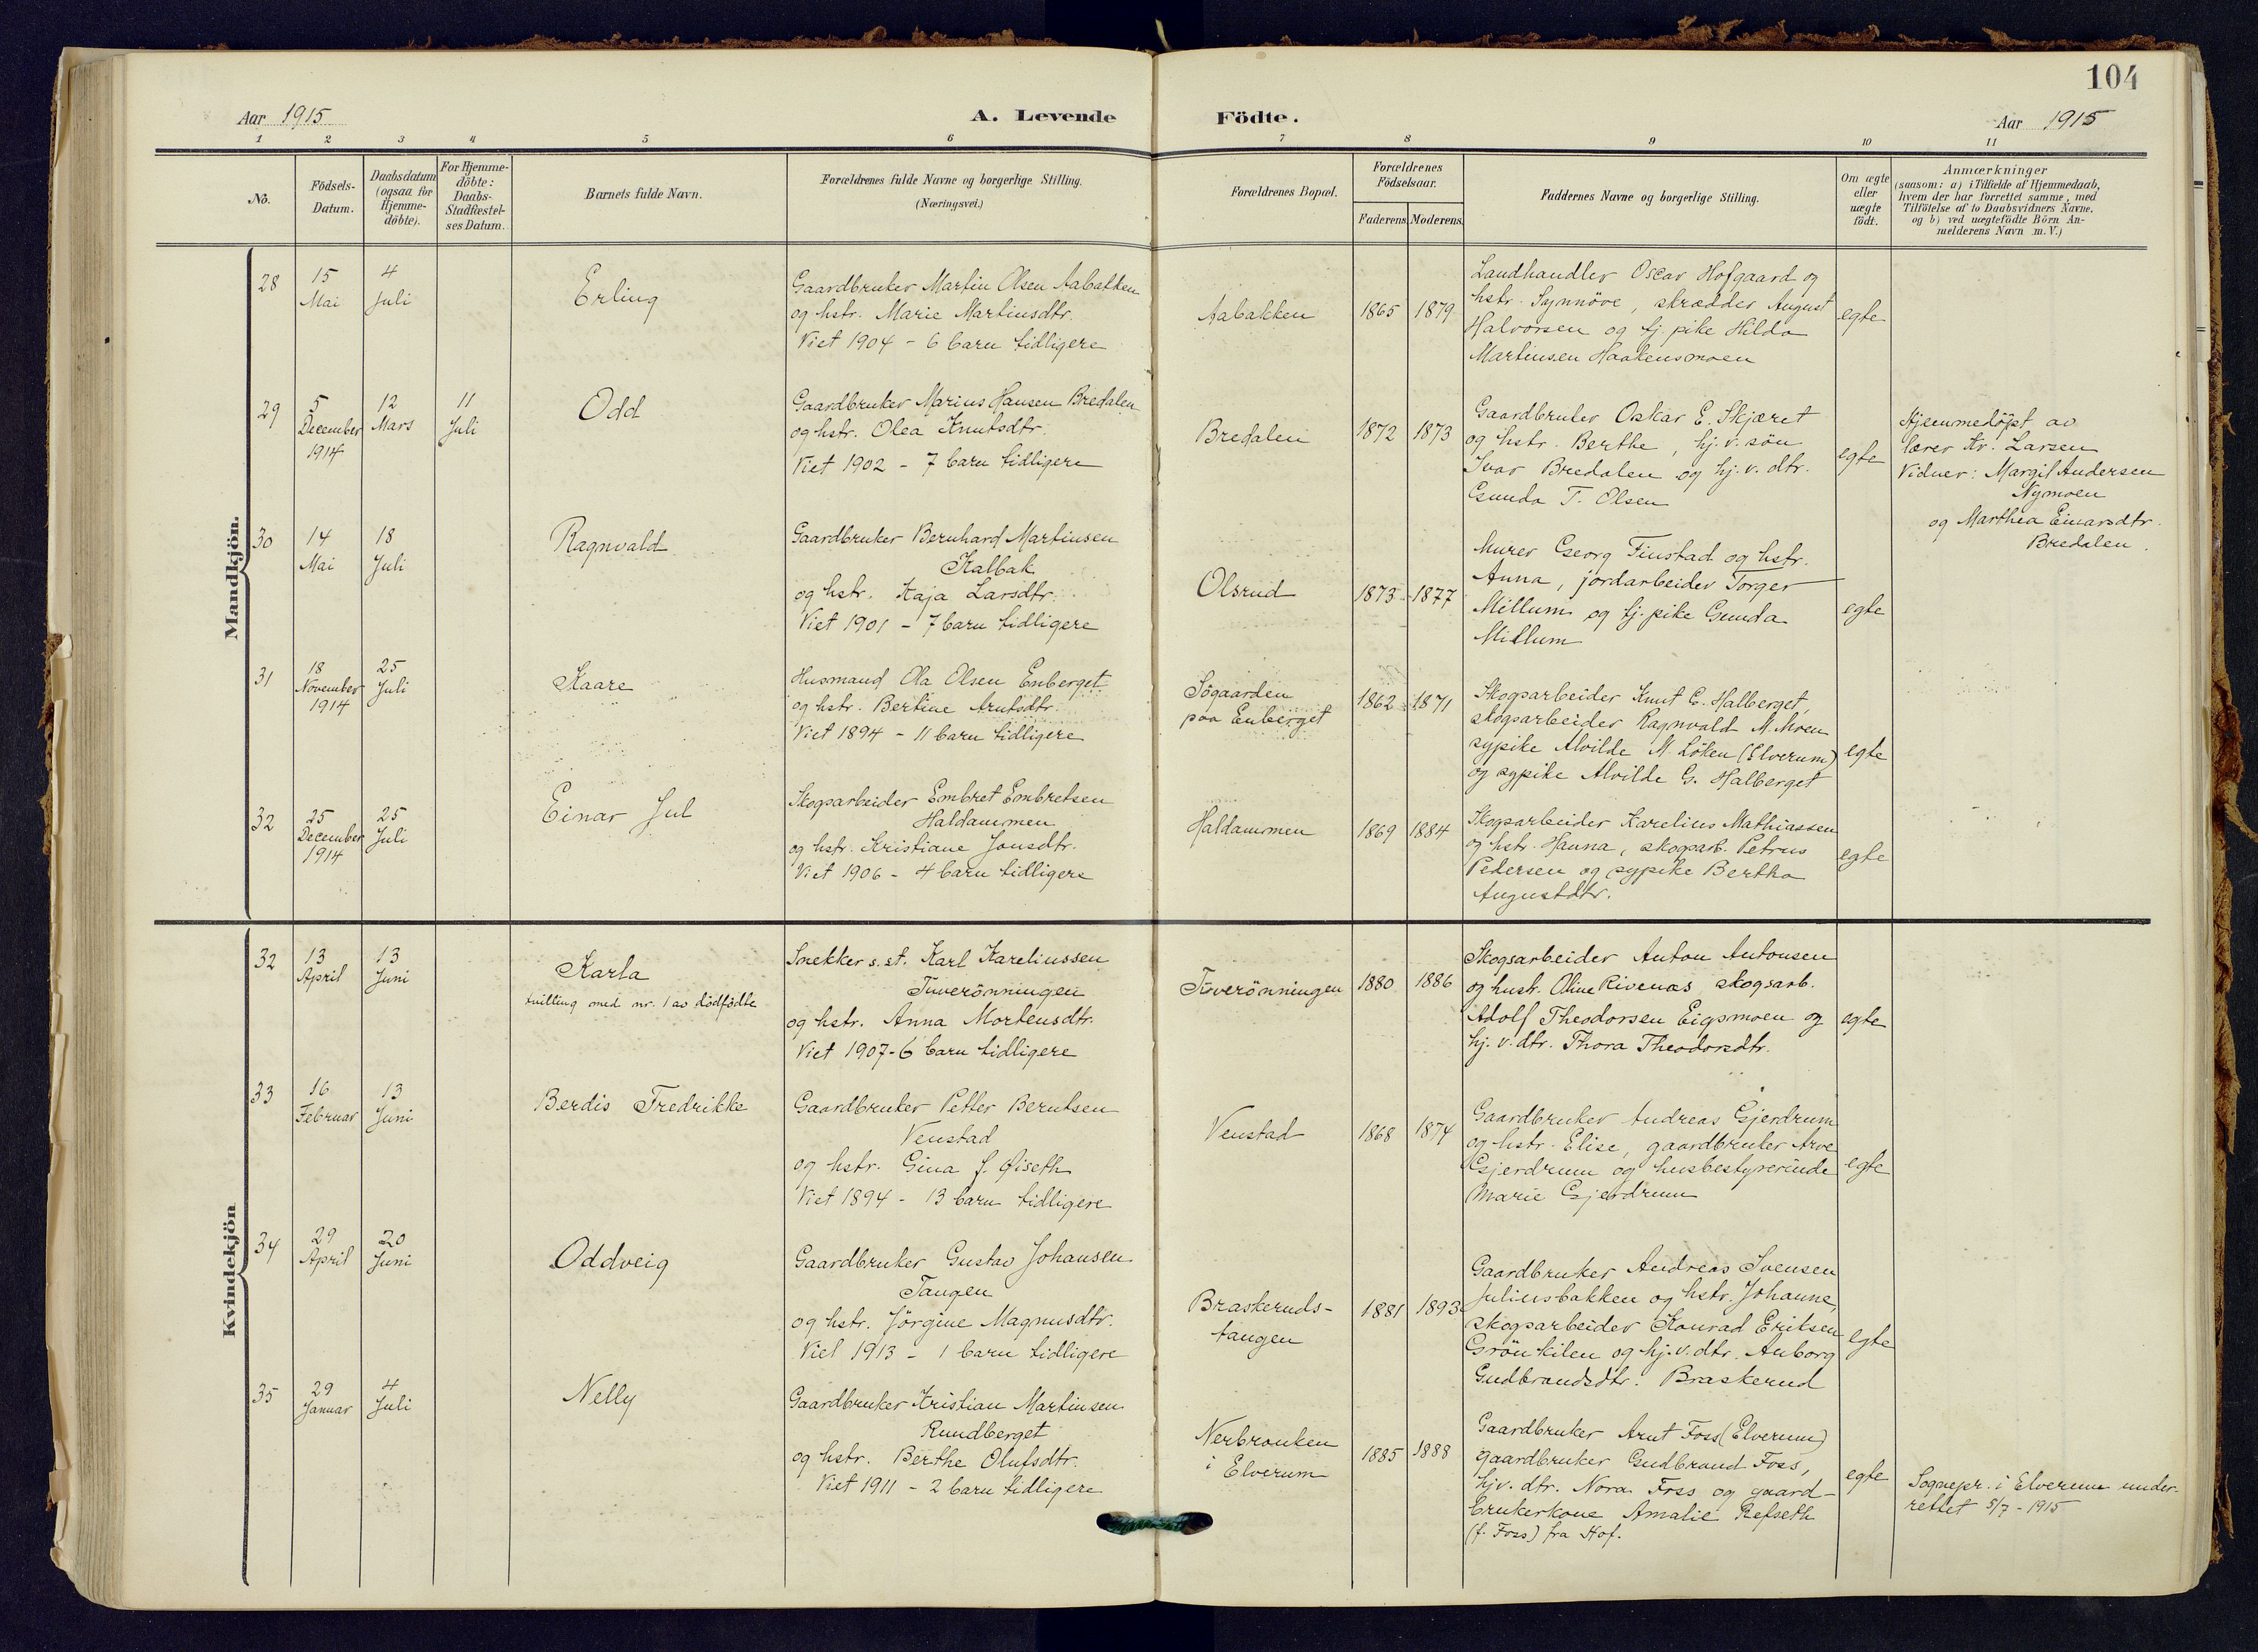 104
Aar 1915
A. Levende Födte.
Aar 1915
1 2 3 4 5 6 7 8 9 10 11
No.
Födsels-
Datum.
Daabsdatum
(ogsaa for
Hjemme-
döbte).
For Hjemme-
döbte:
Daabs-
Stadfæstel-
ses Datum.
Barnets fulde Navn.
Forældrenes fulde Navne og borgerlige Stilling.
(Næringsvei.)
Forældrenes Bopæl.
Forældrenes
Födselsaar.
Faderens. Moderens.
Faddernes Navne og borgerlige Stilling.
Om ægte
eller
uægte
födt.
Anmærkninger
(saasom: a) i Tilfælde af Hjemmedaab,
hvem der har forrettet samme, med
Tilföielse af to Daabsvidners Navne.
og b) ved uægtefödte Börn An-
melderens Navn m.V.)
Mandkjön.
28
15
Mai
4
Juli
Erling
Gaardbruker Martin Olsen Aabakken
og hstr. Marie Martinsdtr.
Viet 1904 - 6 barn tidligere
Aabakken
1865
1879
Landhandler Oscar Hofgaard og
hstr. Synnöve, skrædder August
Halvorsen og tj. pike Hilda
Martinsen Haakensmoen
egte
29
5
December
1914
12
Mars
11
Juli
Odd
Gaardbruker Marius Hansen Bredalen
og hstr. Olea Knutsdtr.
Viet 1902 - 7 barn tidligere
Bredalen
1872
1873
Gaardbruker Oskar E. Skjæret
og hstr. Berthe, hj. v. sön
Ivar Bredalen og hj. v. dtr.
Gunda T. Olsen
egte
Hjemmedöpt av
lærer Kr. Larsen
Vidner: Margit Andersen
Nymoen
og Marthea Einarsdtr.
Bredalen.
30
14
Mai
18
Juli
Ragnvald
Gaardbruker Bernhard Martinsen
Kalbak
og hstr. Kaja Larsdtr.
Viet 1901 - 7 barn tidligere
Olsrud
1873
1877
Murer Georg Finstad og hstr.
Anna, jordarbeider Torger
Millum og tj. pike Gunda
Millum
egte
31
18
November
1914
25
Juli
Kaare
Husmand Ola Olsen Enberget
og hstr. Bertine Arntsdtr.
Viet 1894 - 11 barn tidligere
Sögaarden
paa Enberget
1862
1871
Skogsarbeider Knut G. Halberget,
skogsarbeider Ragnvald M. Moen
sypike Alvilde M. Löken (Elverum)
og sypike Alvilde G. Halberget
egte
32
25
December
1914
25
Juli
Einar Jul
Skogsarbeider Embret Embretsen
Haldammen
og hstr. Kristiane Jonsdtr.
Viet 1906 - 4 barn tidligere
Haldammen
1869
1884
Skogsarbeider Karelius Mathiassen
og hstr. Hanna, skogsarb. Petrus
Pedersen og sypike Bertha
Augustdtr.
egte
Kvindekjön
32
13
April
13
Juni
Karla
tvilling med nr. 1 av dödfödte
Snekker s. st. Karl Kareliussen
Tuverönningen
og hstr. Anna Mortensdtr.
Viet 1907 - 6 barn tidligere
Tuverönningen
1880
1886
Skogsarbeider Anton Antonsen
og hustr. Oline Rivenæs, skogsarb.
Adolf Theodorsen Eigsmoen og
hj. v. dtr. Thora Theodorsdtr.
egte
33
16
Februar
13
Juni
Berdis Fredrikke
Gaardbruker Petter Berntsen
Venstad
og hstr. Gina f. Øiseth
Viet 1894 - 13 barn tidligere
Venstad
1868
1874
Gaardbruker Andreas Gjerdrum
og hstr. Elise, gaardbruker Arve
Gjerdrum og husbestyrerinde
Marie Gjerdrum
egte
34
29
April
20
Juni
Oddveig
Gaardbruker Gustav Johansen
Tangen
og hstr. Jörgine Magnusdtr.
Viet 1913 - 1 barn tidligere
Braskeruds-
tangen
1881
1893
Gaardbruker Andreas Svensen
Juliusbakken og hstr. Johanne,
skogsarbeider Konrad Eriksen
Grönkilen og hj. v. dtr. Anborg
Gudbrandsdtr. Braskerud
egte
35
29
Januar
4
Juli
Nelly
Gaardbruker Kristian Martinsen
Rundberget
og hstr. Berthe Olufsdtr.
Viet 1911 - 2 barn tidligere
Nerbronken
i Elverum
1885
1888
Gaardbruker Arnt Foss (Elverum)
gaardbruker Gudbrand Foss,
hjv. dtr. Nora Foss og gaard-
brukerkone Amalie Refseth
(f. Foss) fra Hof.
egte
Sognepr. i Elverum under-
rettet 5/7 - 1915